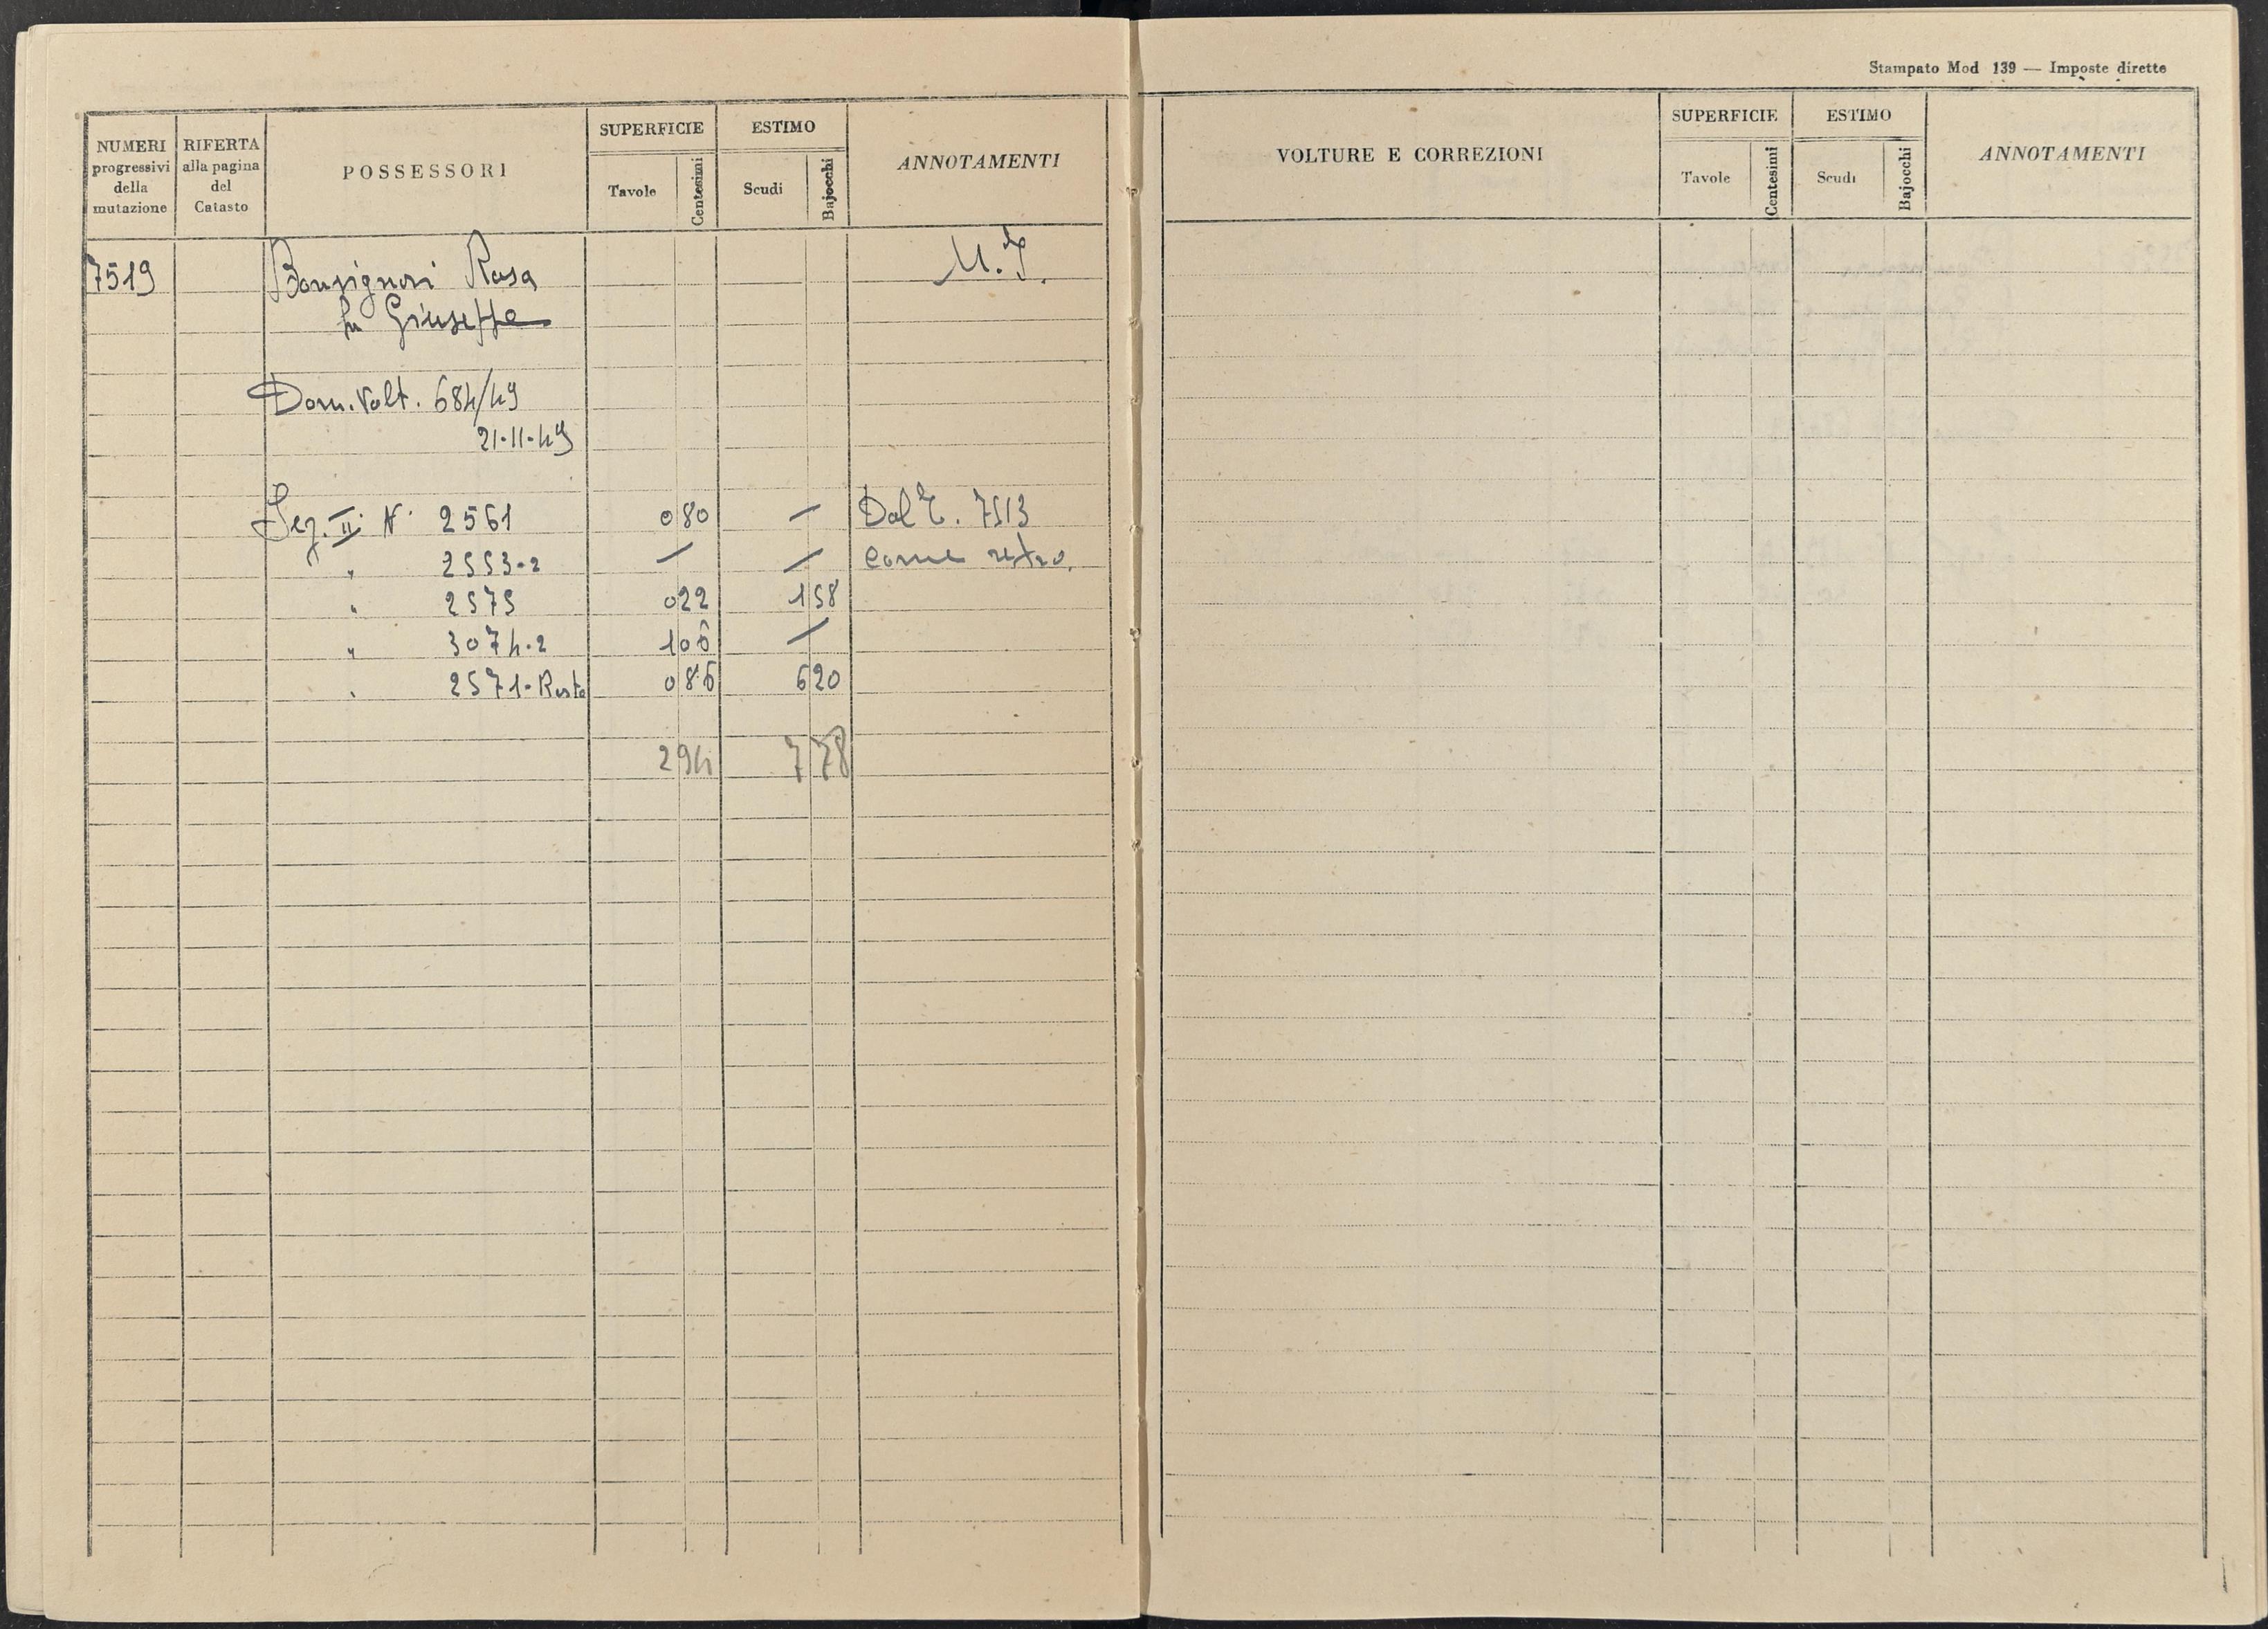 Stampato Mod 139 — Imposte dirette
NUMERI progressivi della mutazione
RIFERTA alla pagina del Catasto
POSSESSORI
SUPERFICIE
Tavole
Centesimi
ESTIMO
Scudi
Bajocchi
ANNOTAMENTI
7519 Bonsignori Rosa M.T.
fu Giuseppe
Dom. Volt. 684/49
21-11-49
Sez. II N. 2561 0 80 — Dal T. 7513
" 2553-2 — — come retro.
" 2575 0 22 1 58
" 3074-2 1 06 —
" 2571-Resto 0 86 6 20
2 94 7 78
VOLTURE E CORREZIONI
SUPERFICIE
Tavole
Centesimi
ESTIMO
Scudi
Bajocchi
ANNOTAMENTI